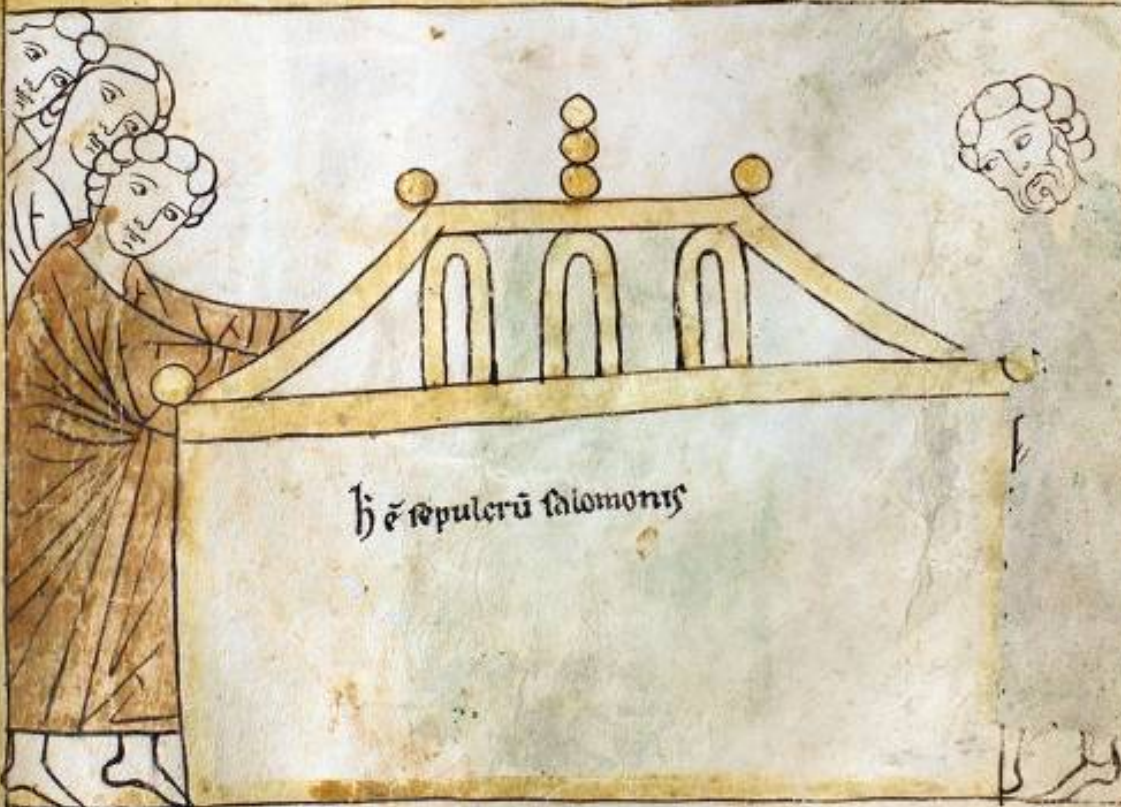 h̄ ē sepulcrū salomonis